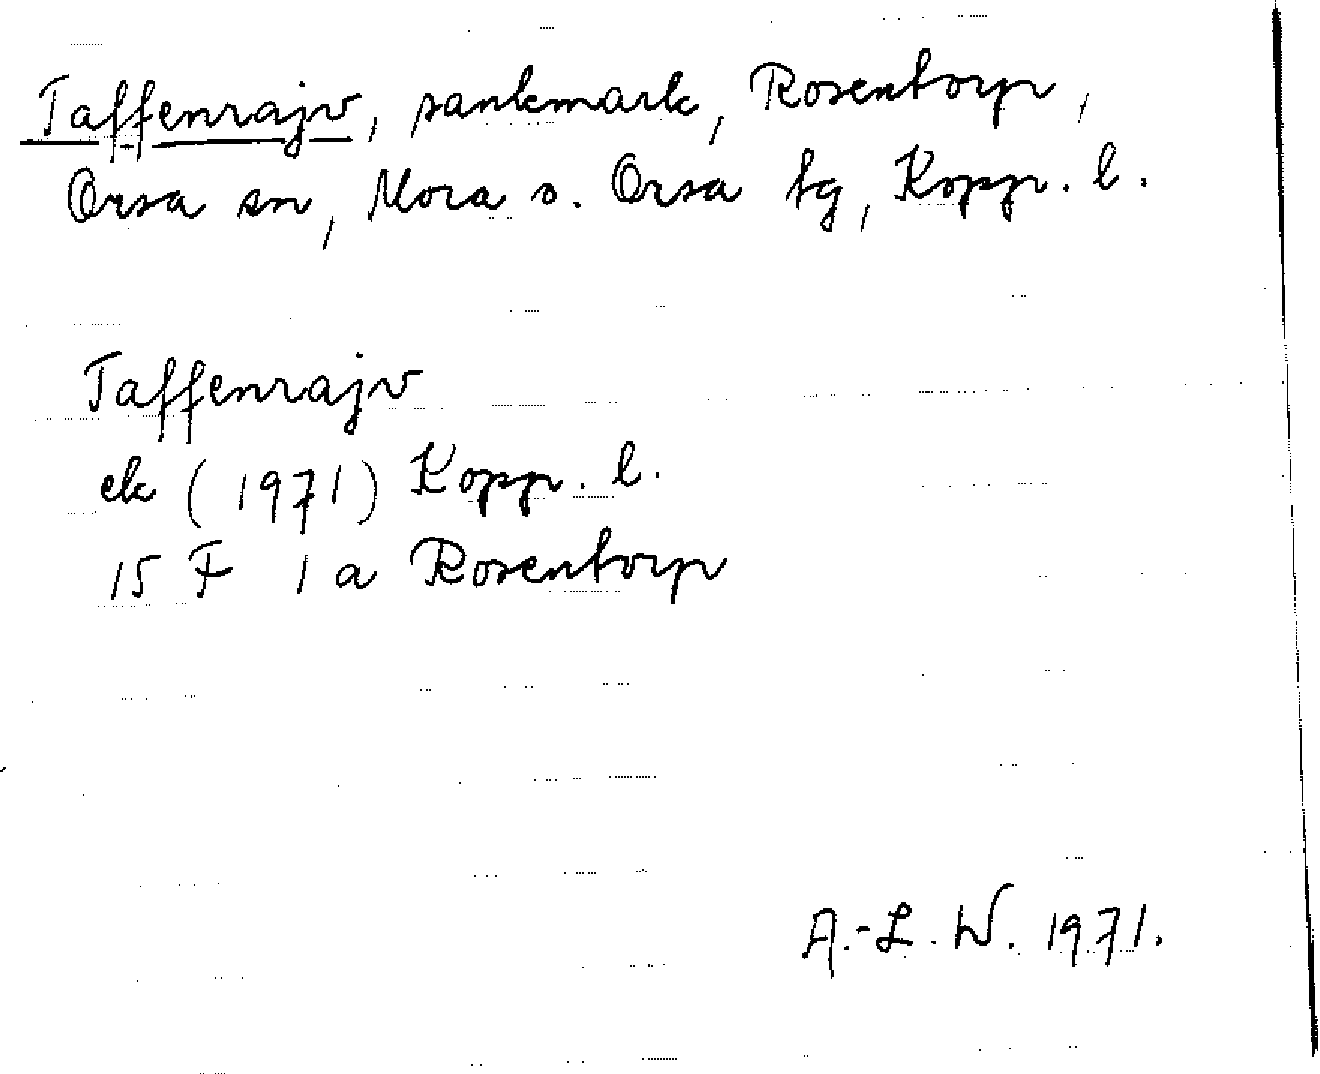 Taffenrajv, sankmark, Rosentorp,
Orsa sn, Mora o. Orsa tg, Kopp. l.
Taffenrajv
ek (1971) Kopp. l.
15 F 1 a Rosentorp
A.-L. W. 1971.